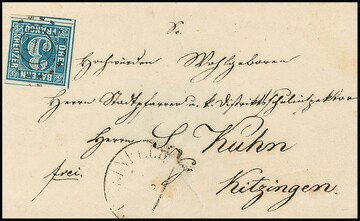 DREI
BAYERN
3
FRANCO
KREUZER
Sr.
Hochwürden Wohlgeboren
Herrn Stadtpfarrer u. k. Distriktsschulinspektor
Herrn S. Kuhn
zu
frei.
Kitzingen.